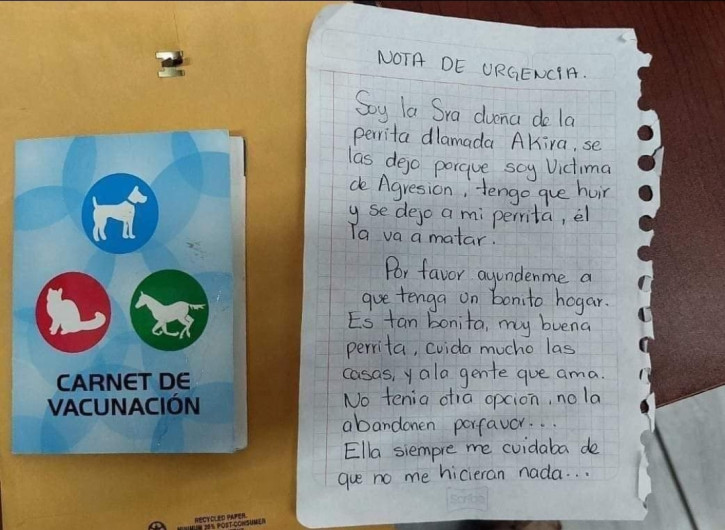 CARNET DE
VACUNACIÓN
RECYCLED PAPER.
20% POST-CONSUMER
NOTA DE URGENCIA.
Soy la Sra dueña de la
perrita dlamada Akira, se
las dejo porque soy Victima
de Agresion, tengo que huir
y se dejo a mi perrita, él
la va a matar.
Por favor ayundenme a
que tenga un bonito hogar.
Es tan bonita, muy buena
perrita, cuida mucho las
casas, y a la gente que ama.
No tenia otra opcion, no la
abandonen porfavor...
Ella siempre me cuidaba de
que no me hicieran nada...
Scribe